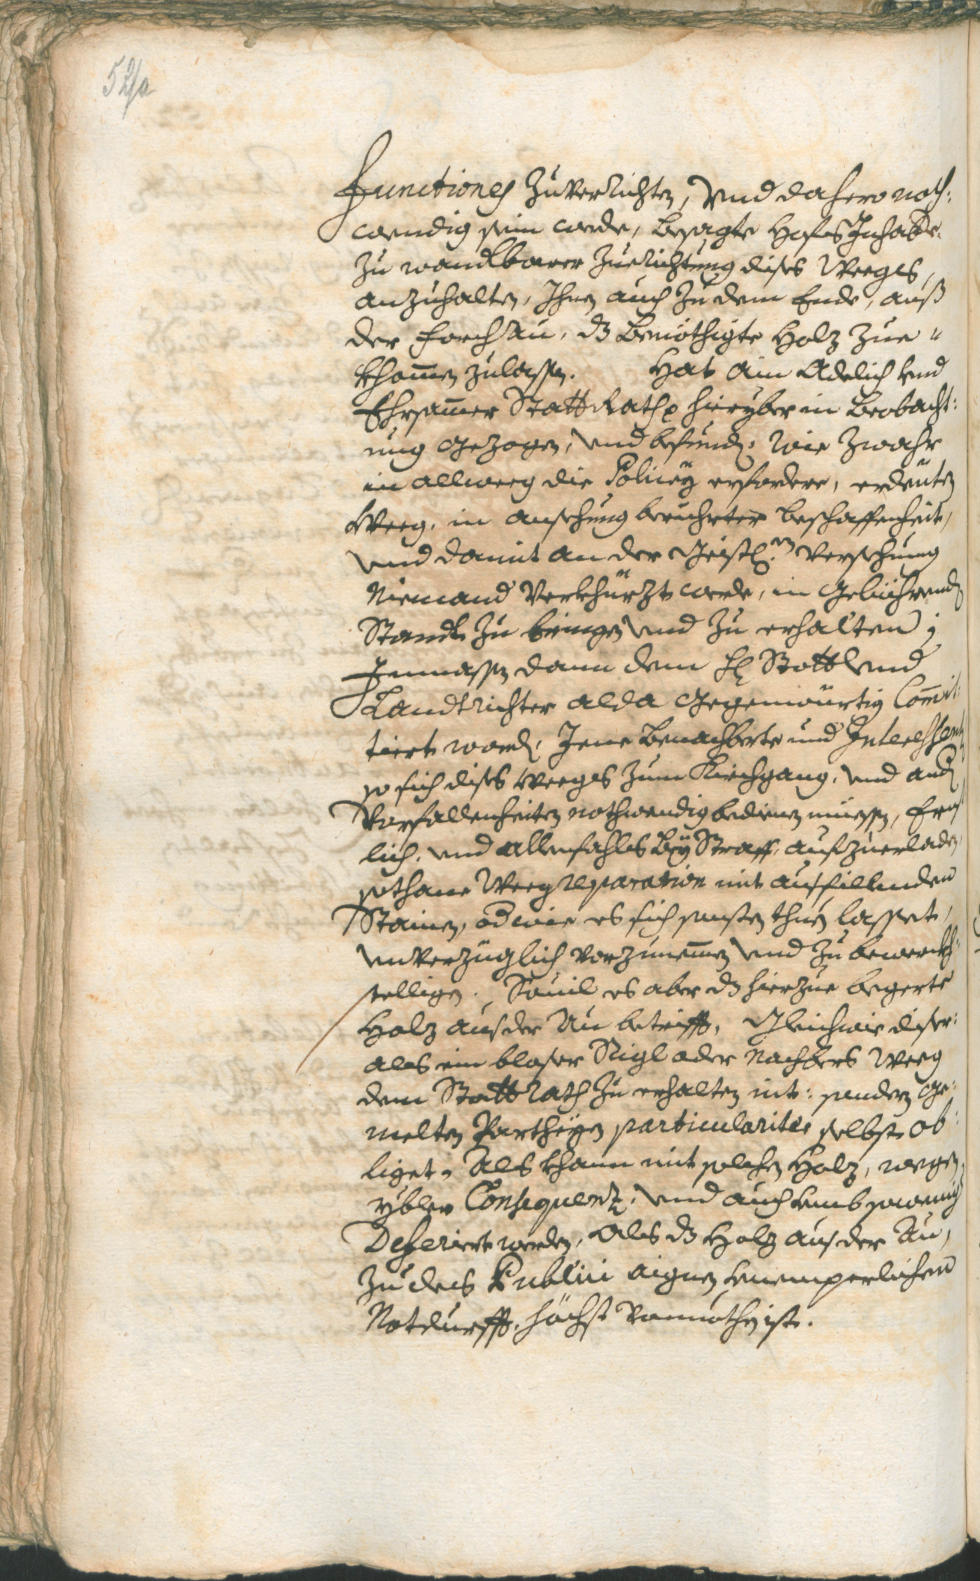 52/a
Functiones zuverrichten, vnd dahero noth:
wendig sein werde, besagte Hofs Inhaber
zu wandlbarer Zuerichtung dises Weeges,
anzuhalten, Ihnen auch zu dem Ende, auß
der Forch Au, dz benöthigte Holz zue"
khom̄en zulassen. Hat Ain Adelich vnd
Ehrsam̄er Statt Rath hieryber in beobacht:
ung gezogen, vnd befund: wie zwahr
in allweeg die Policeÿ erfordere, erdeüten
Weeg, in ansehung berührter beschaffenheit,
vnd damit an der Geistl: Versehung
Niemand Verkhürzt werde, in gebührend
Standt zu bringen vnd zu erhalten;
Inmassen dann dem H: Statt vnd
Landtrichter alda gegenwürtig Com̄it:
tiert word: Jene benachberte und Interessent
so sich dises Weeges zum Kirchgang, vnd and
Vorfallenheiten nothwendig bedienen müessen,
lich, vnd allenfahls bey Straff, aufzuerladen,
sothane Weeg reparation mit ausfillenden
Stainen, od wie es sich sonsten thuen lasset,
vnverzüglich vorzunem̄en vnd zu bewerckh:
stelligen. Souil es aber dz hierzue begerte
Holz aus der Au betrifft, gleichwie diser:
als ein bloser Stigl oder Nachbers Weeg
dem Statt Rath zu erhalten nit: sondern ge:
melten Partheÿen particulariter selbst ob:
liget, Als khann mit solchen Holz, wegen
ybler Consequenz, vnd auch umb sowenig
Deferiert werden, Als dz Holz aus der Au,
zu des Publici aignen
Notdurfft, höchst vonnöthen ist.